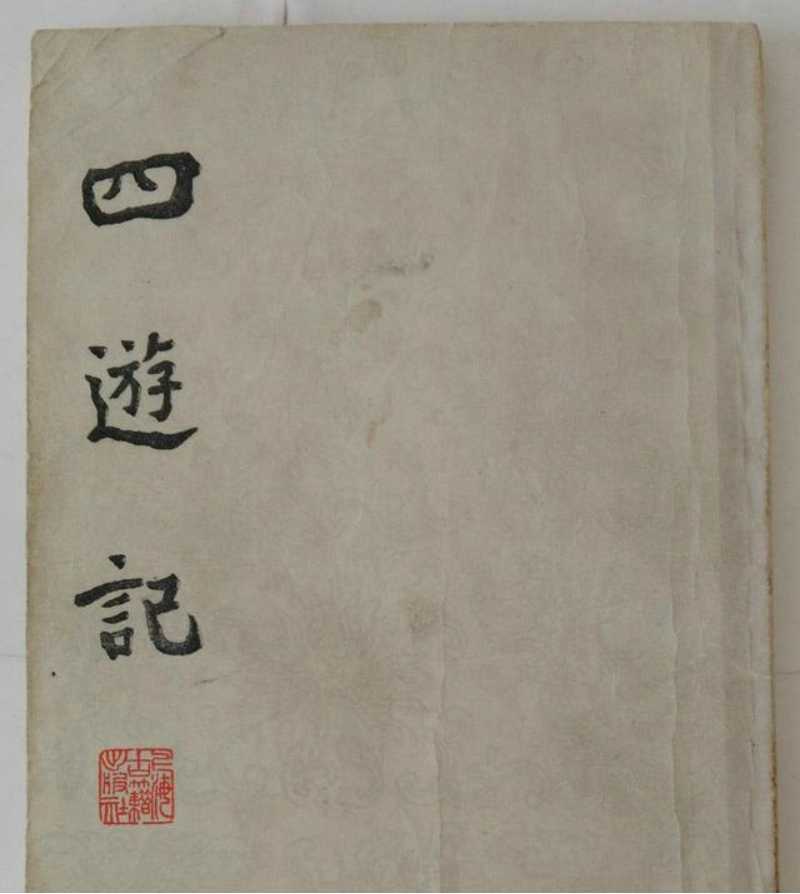 四遊記
上海古籍出版社